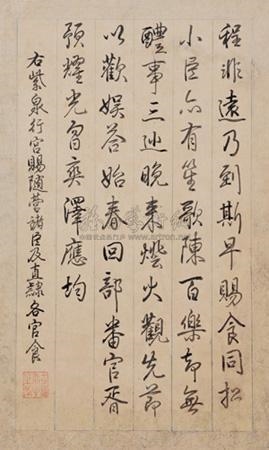 程非遠乃到斯早賜食同於
小臣亦有笙歌陳百樂却無
醴事三巡晚来燈火觀先節
以歡娱答始春回部番官胥
預燿光曾奕澤應均
右紫泉行宫賜隨營諸臣及直隸各官食